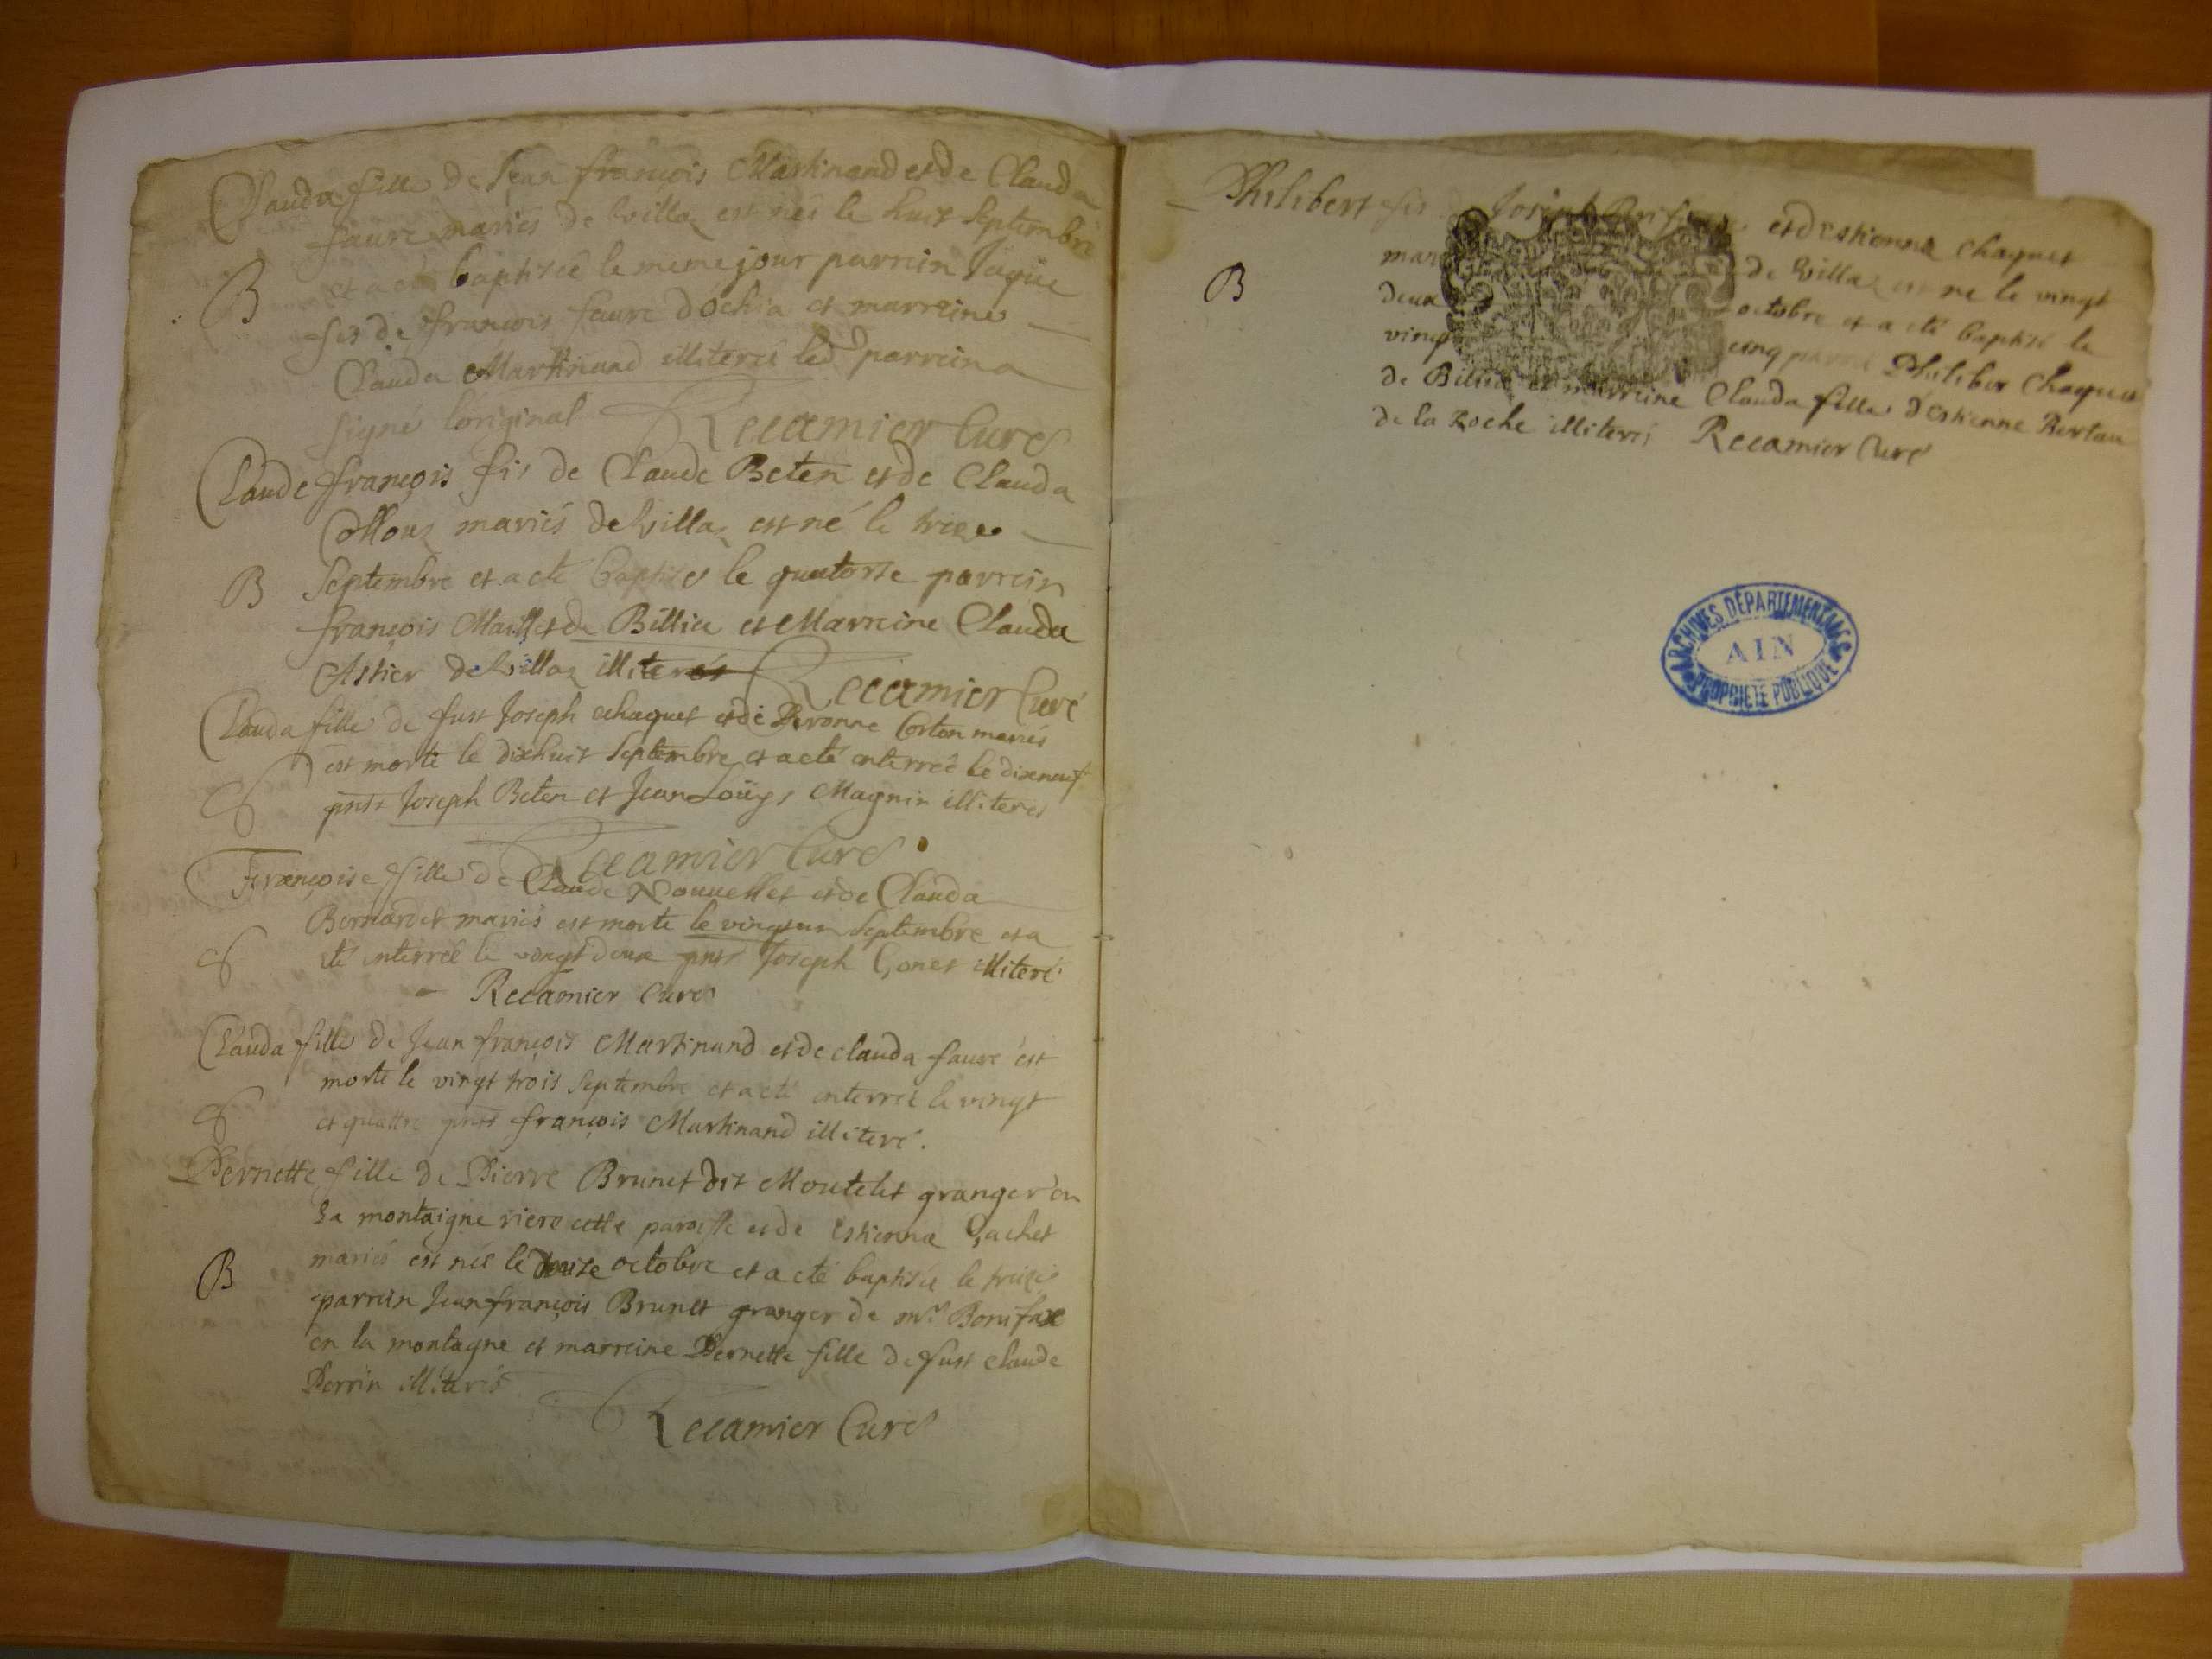 Clauda fille de Jean françois Martinand et de Clauda
faure mariés de Villaz est née le huit Septembre
B
et a eté baptisée le meme jour parrein Jaque
fis de françois faure dochia et marreine
Clauda Martinand illiterée led parrein a
signé l'original Recamier Curé
Claude françois fis de Claude Beten et de Clauda
mariés de Villaz est né le treize
B
Septembre et a eté baptisé le quatorse parrein
françois Maillet de Billia et Marreine Clauda
Astier de Villaz illiterés Recamier Curé
Clauda fille de fust Joseph chaquet et de Peronne Corton mariés
est morte le dixhuit Septembre et a eté enterreé le dixneuf
pnts Joseph Beten et Jean Loüys Magnin illiterés
Recamier Curé
Françoise fille de Claude Nouuellet et de Clauda
Bernardet mariés est morte le vingtun Septembre et a
eté enterreé le vingt deux pnts Joseph Gonet illiteré
Recamier Curé
Clauda fille de Jean françois Martinand et de clauda faure est
morte le vingt trois Septembre et a eté enterreé le vingt
et quattre pnts françois Martinand illiteré.
Pernette fille de Pierre Brunet dit Moutelet granger en
la montaigne riere cette paroisse et de Estienna Gachet
mariés est née le octobre et a eté baptisée le treize
B
parrein Jean françois Brunet granger de mr Bonifax
en la montagne et marreine Pernette fille de fust claude
Perrin illiterés
Recamier Curé
Philibert fis Joseph et d'Estienna Chaquet
B
de Villaz est né le vingt
deux octobre et a eté baptisé le
vingt cinq parrein Philiber Chaquet
de Billia et marreine Clauda fille d'Estienne Bertau
de la Roche illiterés Recamier Curé
ARCHIVES DÉPARTEMENTALES
AIN
PROPRIÉTÉ PUBLIQUE